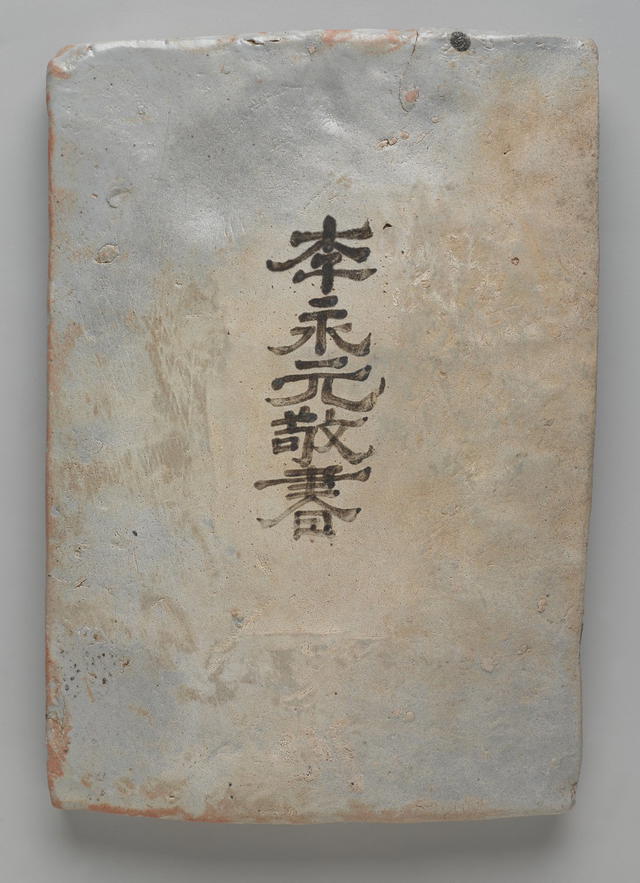 李永元敬書